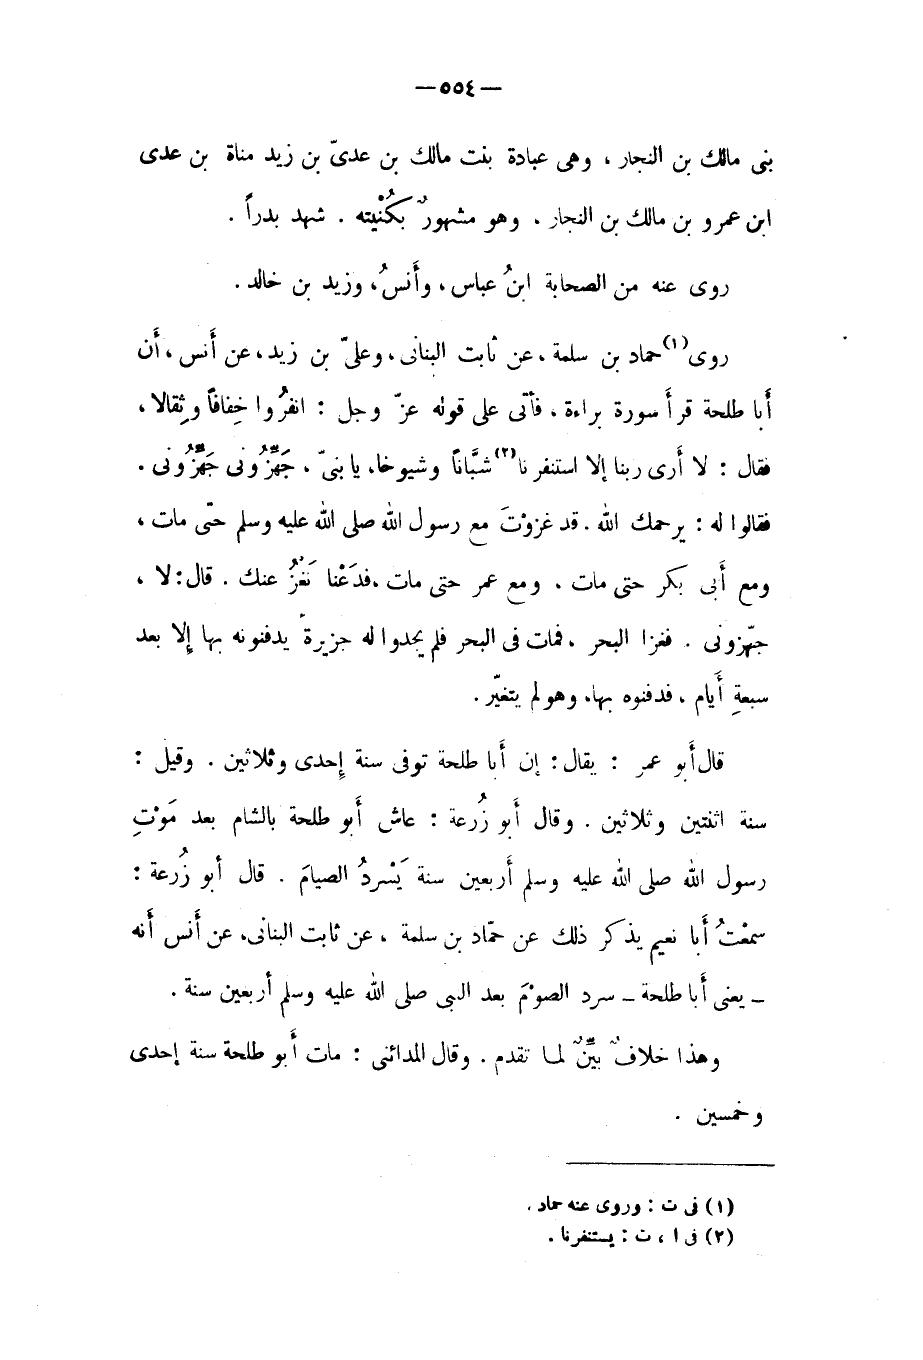 — ٥٥٤ —
بنى مالك بن النجار ، وهى عبادة بنت مالك بن عدىّ بن زيد مناة بن عدى
ابن عمرو بن مالك بن النجار . وهو مشهورٌ بكُنْيته . شهد بدراً .
روى عنه من الصحابة ابنُ عباس ، وأَنسُ، وزيد بن خالد .
روى(١) حماد بن سلمة ، عن ثابت البنانى ، وعلىّ بن زيد ، عن أَنس ، أَن
أَبا طلحة قرأَ سورة براءة ، فأتى على قوله عزّ وجل : انفرُوا خِفافاً وثِقالا ،
فقال : لا أَرى ربنا إلا استنفرنا(٢) شبَّاناً وشيوخا، يا بنىّ ، جَهِّزُونى جَهِّزُونى .
فقالوا له : يرحمك الله . قد غزوْتَ مع رسول الله صلى الله عليه وسلم حتّى مات ،
ومع أَبى بكر حتى مات ، ومع عمر حتى مات ،فدَعْنا نَغْزُ عنك . قال : لا ،
جهّزونى . فغزا البحر ، فمات فى البحر فلم يجدوا له جزيرة يدفنونه بها إِلا بعد
سبعةِ أَيام ، فدفنوه بها، وهو لم يتغيّر .
قال أَبو عمر : يقال : إن أَبا طلحة توفى سنة إِحدى وثلاثين . وقيل :
سنة اثنتين وثلاثين . وقال أَبو زُرعة : عاش أَبو طلحة بالشام بعد مَوْتِ
رسول الله صلى الله عليه وسلم أَربعين سنة يَسْردُ الصيامَ . قال أبو زُرعة :
سمعْتُ أَبا نعيم يذكر ذلك عن حمّاد بن سلمة ، عن ثابت البنانى، عن أَنس أَنه
ــ يعنى أَبا طلحة ــ سرد الصوْمَ بعد النبى صلى الله عليه وسلم أربعين سنة .
وهذا خلافٌ بيِّنٌ لما تقدم . وقال المدائنى : مات أَبو طلحة سنة إحدى
وخمسين .
(١) فى ت : وروى عنه حماد .
(٢) فى ا ، ت : يستنفرنا .